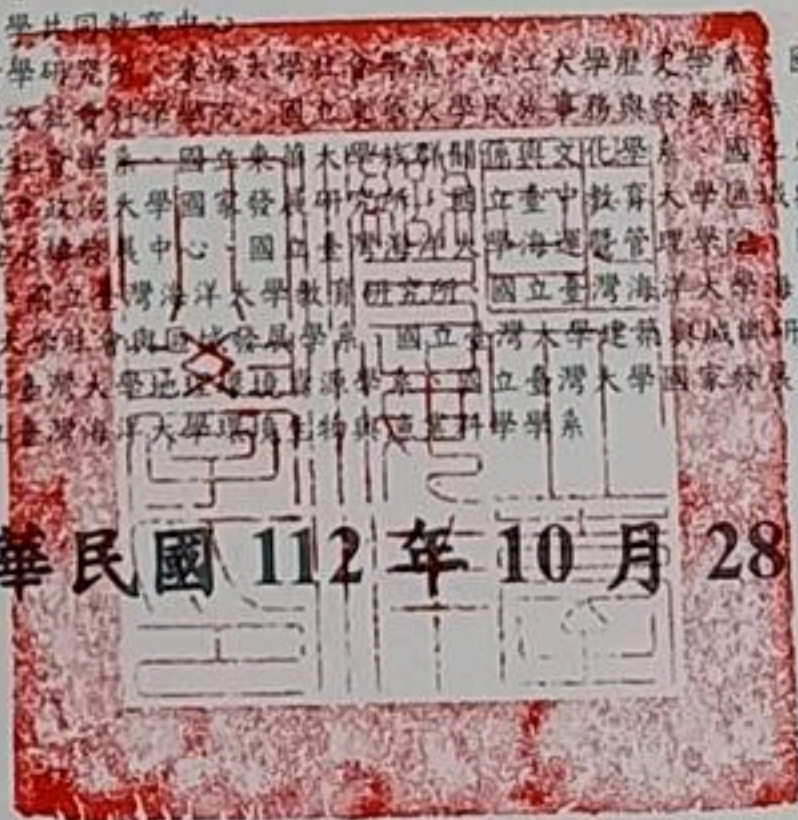 學共同教育中心
會學研究所、東海大學社會學系、淡江大學歷史學系、國
人文社會科學學院、國立東華大學民族事務與發展學系
社會學系、國立東華大學族群關係與文化學系、國立
國立政治大學國家發展研究所、國立臺中教育大學區域
永續發展中心、國立臺灣海洋大學海運暨管理學院、
國立臺灣海洋大學教育研究所、國立臺灣海洋大學海
大學社會與區域發展學系、國立臺灣大學建築與城鄉研
立臺灣大學地理環境資源學系、國立臺灣大學國家發展
立臺灣海洋大學環境生物與漁業科學學系
華民國 112 年 10 月 28